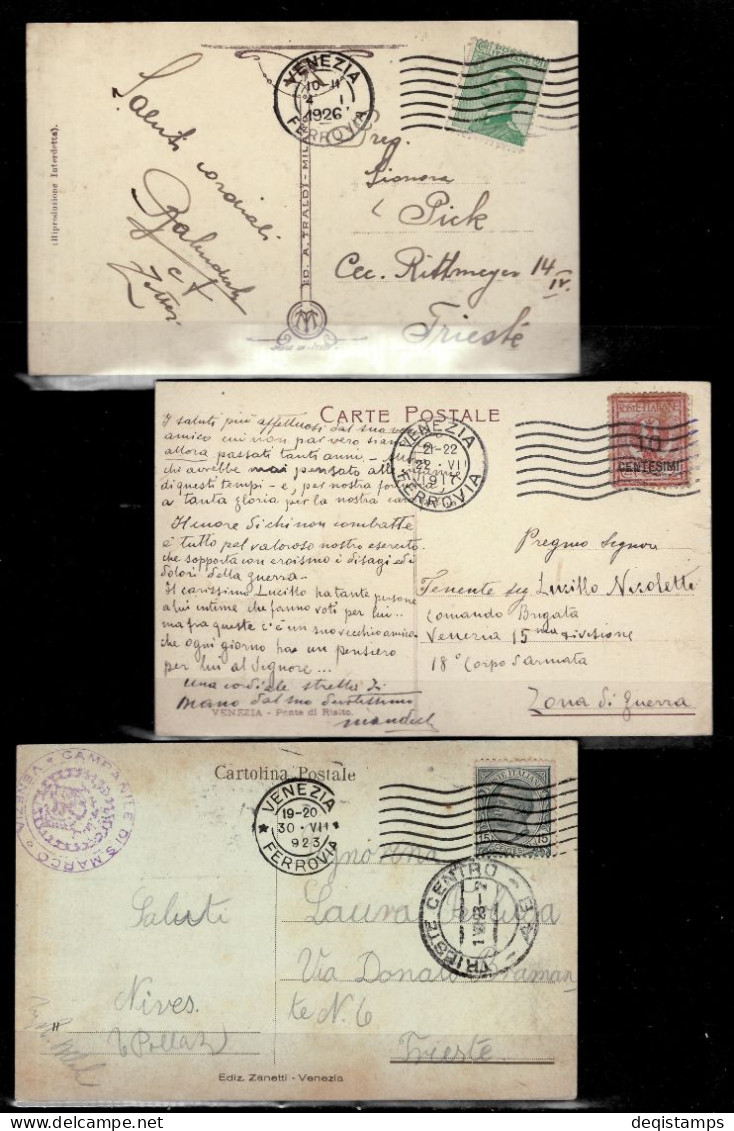 (Riproduzione Interdetta).
Saluti cordiali
ED. A. TRALDI - MILANO
VENEZIA
10-11
4 I
1926
FERROVIA
Signora
Pick
Cec. Rittmeyer 14
IV.
Trieste
CARTE POSTALE
VENEZIA
21-22
22 · VII
1917
FERROVIA
POSTE ITALIANE
CENTESIMI
I saluti più affettuosi dal suo
amico cui non par vero siano
allora passati tanti anni -
chi avrebbe mai pensato alle
di questi tempi - e, per nostra
a tanta gloria per la nostra
Il cuore di chi non combatte
è tutto pel valoroso nostro esercito
che sopporta con eroismo i disagi ed i
dolori della guerra -
Il carissimo Lucillo ha tante persone
a lui intime che fanno voti per lui ..
ma fra queste c'è un suo vecchio amico
che ogni giorno ha un pensiero
per lui al Signore ...
una cordiale stretta di
mano dal suo
VENEZIA - Ponte di Rialto.
Pregmo Signore
Tenente Sig Lucillo Nicoletti
Comando Brigata
Venezia 15ma divisione
18° Corpo d'armata
Zona di Guerra
CAMPANILE DI S. MARCO • VENEZIA •
Cartolina Postale
VENEZIA
19-20
30 · VII
923
FERROVIA
15 15
TRIESTE CENTRO
Saluti
Nives.
Laura
Via Donato Braman
te N. 6
Trieste
H
Ediz. Zanetti - Venezia
deqistamps